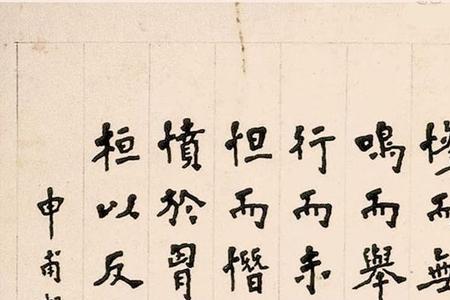 而無
鳴而舉
行而未
怛而憯
憤於
桓以反
申甫